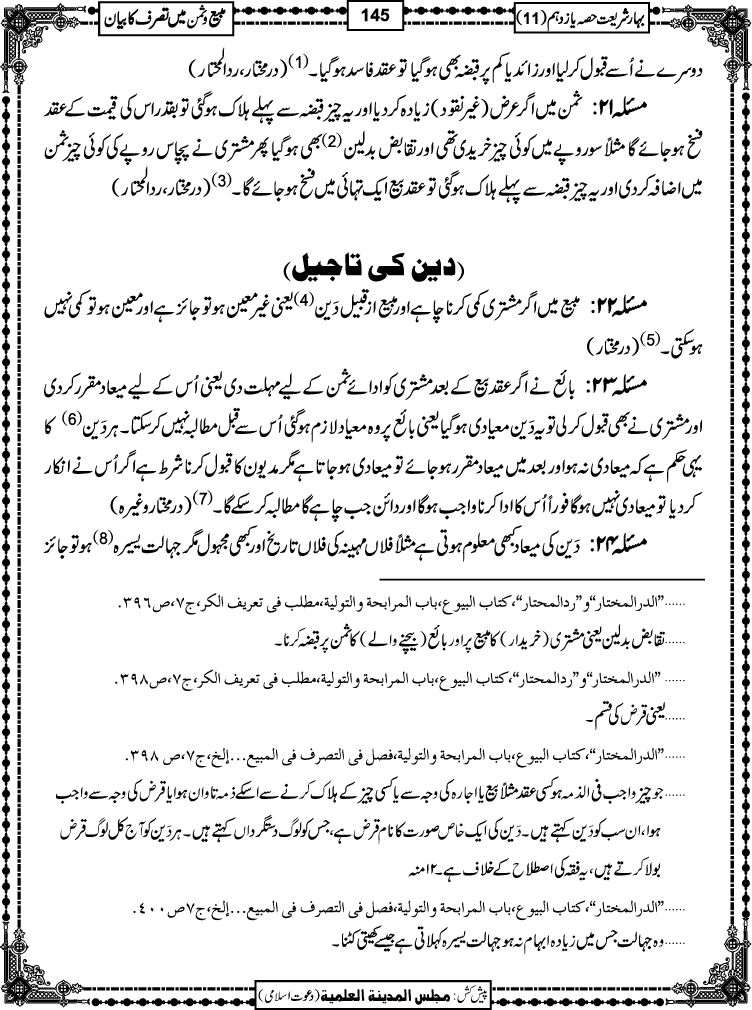 بہار شریعت حصہ یازدہم (11)
145
مبیع و ثمن میں تصرف کا بیان
دوسرے نے اُسے قبول کرلیا اور زائد یا کم پر قبضہ بھی ہوگیا تو عقد فاسد ہوگیا۔(1) (درمختار، ردالمحتار)
مسئلہ ۲۱: ثمن میں اگر عرض (غیر نقود) زیادہ کردیا اور یہ چیز قبضہ سے پہلے ہلاک ہوگئی تو بقدر اس کی قیمت کے عقد
فسخ ہوجائے گا مثلاً سو روپے میں کوئی چیز خریدی تھی اور تقابض بدلین(2) بھی ہوگیا پھر مشتری نے پچاس روپے کی کوئی چیز ثمن
میں اضافہ کردی اور یہ چیز قبضہ سے پہلے ہلاک ہوگئی تو عقد بیع ایک تہائی میں فسخ ہوجائے گا۔(3) (درمختار، ردالمحتار)
(دین کی تاجیل)
مسئلہ ۲۲: مبیع میں اگر مشتری کمی کرنا چاہے اور مبیع از قبیل دَین(4) یعنی غیر معین ہو تو جائز ہے اور معین ہو تو کمی نہیں
ہوسکتی۔(5) (درمختار)
مسئلہ ۲۳: بائع نے اگر عقد بیع کے بعد مشتری کو ادائے ثمن کے لیے مہلت دی یعنی اُس کے لیے میعاد مقرر کردی
اور مشتری نے بھی قبول کرلی تو یہ دَین میعادی ہوگیا یعنی بائع پر وہ میعاد لازم ہوگئی اُس سے قبل مطالبہ نہیں کرسکتا۔ ہر دَین(6) کا
یہی حکم ہے کہ میعادی نہ ہو اور بعد میں میعاد مقرر ہوجائے تو میعادی ہوجاتا ہے مگر مدیون کا قبول کرنا شرط ہے اگر اُس نے انکار
کردیا تو میعادی نہیں ہوگا فوراً اُس کا ادا کرنا واجب ہوگا اور دائن جب چاہے گا مطالبہ کرسکے گا۔(7) (درمختار وغیرہ)
مسئلہ ۲۴: دَین کی میعاد کبھی معلوم ہوتی ہے مثلاً فلاں مہینہ کی فلاں تاریخ اور کبھی مجہول مگر جہالت یسیرہ(8) ہو تو جائز
......"الدرالمختار"و"ردالمحتار"،کتاب البیوع،باب المرابحة والتولیة،مطلب فی تعریف الکر،ج۷،ص۳۹۶.
......تقابض بدلین یعنی مشتری (خریدار) کا مبیع پر اور بائع (بیچنے والے) کا ثمن پر قبضہ کرنا۔
......"الدرالمختار"و"ردالمحتار"،کتاب البیوع،باب المرابحة والتولیة،مطلب فی تعریف الکر،ج۷،ص۳۹۸.
......یعنی قرض کی قسم۔
......"الدرالمختار"، کتاب البیوع،باب المرابحة والتولیة،فصل فی التصرف فی المبیع...إلخ،ج۷،ص ۳۹۸.
......جو چیز واجب فی الذمہ ہو کسی عقد مثلاً بیع یا اجارہ کی وجہ سے یا کسی چیز کے ہلاک کرنے سے اسکے ذمہ تاوان ہوا یا قرض کی وجہ سے واجب
ہوا، ان سب کو دَین کہتے ہیں۔ دَین کی ایک خاص صورت کا نام قرض ہے، جس کو لوگ دستگرداں کہتے ہیں۔ ہر دَین کو آج کل لوگ قرض
بولا کرتے ہیں، یہ فقہ کی اصطلاح کے خلاف ہے۔۱۲منہ
......"الدرالمختار"، کتاب البیوع،باب المرابحة والتولیة،فصل فی التصرف فی المبیع...إلخ،ج۷ص۴۰۰.
......وہ جہالت جس میں زیادہ ابہام نہ ہو جہالت یسیرہ کہلاتی ہے جیسے کھیتی کٹنا۔
پیش کش: مجلس المدینة العلمیة (دعوت اسلامی)